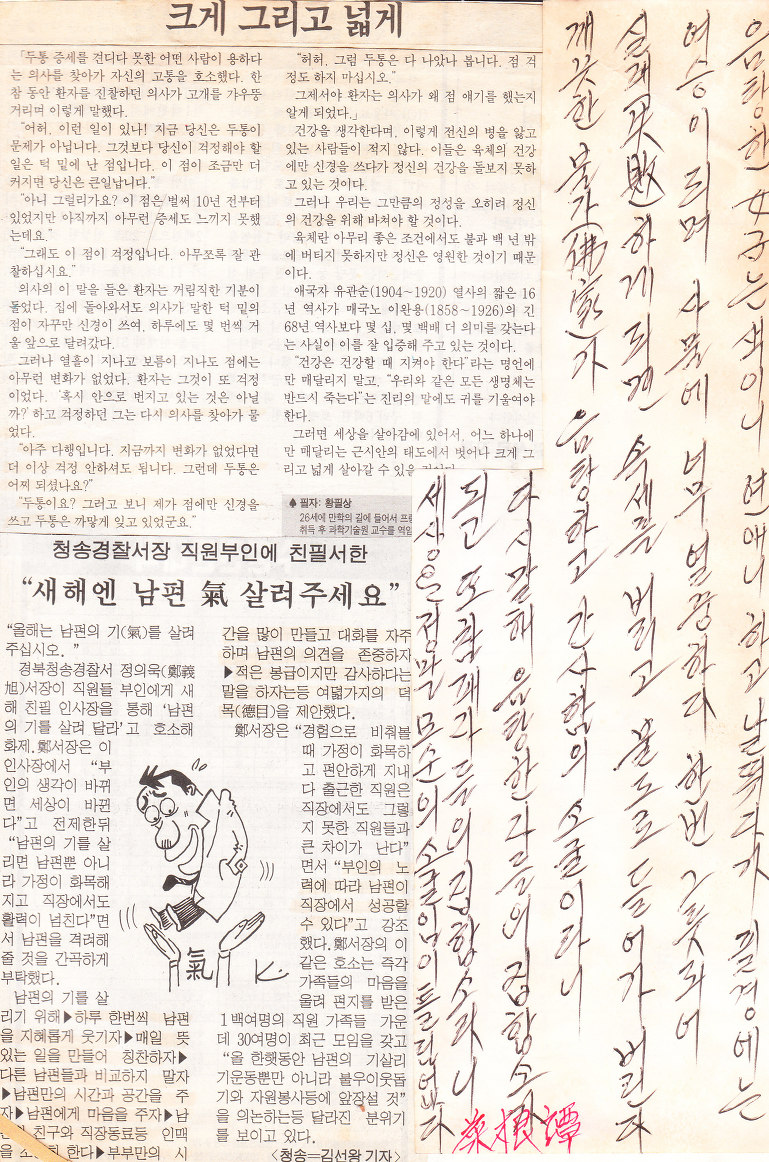 크게 그리고 넓게
「두통 증세를 견디다 못한 어떤 사람이 용하다
는 의사를 찾아가 자신의 고통을 호소했다. 한
참 동안 환자를 진찰하던 의사가 고개를 갸우뚱
거리며 이렇게 말했다.
“어허, 이런 일이 있나! 지금 당신은 두통이
문제가 아닙니다. 그것보다 당신이 걱정해야 할
일은 턱 밑에 난 점입니다. 이 점이 조금만 더
커지면 당신은 큰일납니다.”
“아니 그럴리가요? 이 점은 벌써 10년 전부터
있었지만 아직까지 아무런 증세도 느끼지 못했
는데요.”
“그래도 이 점이 걱정입니다. 아무쪼록 잘 관
찰하십시요.”
의사의 이 말을 들은 환자는 꺼림직한 기분이
들었다. 집에 돌아와서도 의사가 말한 턱 밑의
점이 자꾸만 신경이 쓰여, 하루에도 몇 번씩 거
울 앞으로 달려갔다.
그러나 열흘이 지나고 보름이 지나도 점에는
아무런 변화가 없었다. 환자는 그것이 또 걱정
이었다. ‘혹시 안으로 번지고 있는 것은 아닐
까?’ 하고 걱정하던 그는 다시 의사를 찾아가 물
었다.
“아주 다행입니다. 지금까지 변화가 없었다면
더 이상 걱정 안하셔도 됩니다. 그런데 두통은
어찌 되셨나요?”
“두통이요? 그러고 보니 제가 점에만 신경을
쓰고 두통은 까맣게 잊고 있었군요.”
“허허, 그럼 두통은 다 나았나 봅니다. 점 걱
정도 하지 마십시요.”
그제서야 환자는 의사가 왜 점 얘기를 했는지
알게 되었다.」
건강을 생각한다며, 이렇게 전신의 병을 앓고
있는 사람들이 적지 않다. 이들은 육체의 건강
에만 신경을 쓰다가 정신의 건강을 돌보지 못하
고 있는 것이다.
그러나 우리는 그만큼의 정성을 오히려 정신
의 건강을 위해 바쳐야 할 것이다.
육체란 아무리 좋은 조건에서도 불과 백 년 밖
에 버티지 못하지만 정신은 영원한 것이기 때문
이다.
애국자 유관순(1904~1920) 열사의 짧은 16
년 역사가 매국노 이완용(1858~1926)의 긴
68년 역사보다 몇 십, 몇 백배 더 의미를 갖는다
는 사실이 이를 잘 입증해 주고 있는 것이다.
“건강은 건강할 때 지켜야 한다”라는 명언에
만 매달리지 말고, “우리와 같은 모든 생명체는
반드시 죽는다”는 진리의 말에도 귀를 기울여야
한다.
그러면 세상을 살아감에 있어서, 어느 하나에
만 매달리는 근시안의 태도에서 벗어나 크게 그
리고 넓게 살아갈 수 있을 것이다.
♠ 필자: 황필상
26세에 만학의 길에 들어서 프랑
취득 후 과학기술원 교수를 역임
청송경찰서장 직원부인에 친필서한
“새해엔 남편 氣 살려주세요”
“올해는 남편의 기(氣)를 살려
주십시오. ”
경북청송경찰서 정의욱(鄭義
旭)서장이 직원들 부인에게 새
해 친필 인사장을 통해 ‘남편
의 기를 살려 달라’고 호소해
화제. 鄭서장은 이
인사장에서 “부
인의 생각이 바뀌
면 세상이 바뀐
다”고 전제한뒤
“남편의 기를 살
리면 남편뿐 아니
라 가정이 화목해
지고 직장에서도
활력이 넘친다”면
서 남편을 격려해
줄 것을 간곡하게
부탁했다.
남편의 기를 살
리기 위해▶하루 한번씩 남편
을 지혜롭게 웃기자▶매일 뜻
있는 일을 만들어 칭찬하자▶
다른 남편들과 비교하지 말자
▶남편만의 시간과 공간을 주
자▶남편에게 마음을 주자▶남
편의 친구와 직장동료등 인맥
을 소중히 한다▶부부만의 시
간을 많이 만들고 대화를 자주
하며 남편의 의견을 존중하자
▶적은 봉급이지만 감사하다는
말을 하자는등 여덟가지의 덕
목(德目)을 제안했다.
鄭서장은 “경험으로 비춰볼
때 가정이 화목하
고 편안하게 지내
다 출근한 직원은
직장에서도 그렇
지 못한 직원들과
큰 차이가 난다”
면서 “부인의 노
력에 따라 남편이
직장에서 성공할
수 있다”고 강조
했다. 鄭서장의 이
같은 호소는 즉각
가족들의 마음을
울려 편지를 받은
1백여명의 직원 가족들 가운
데 30여명이 최근 모임을 갖고
“올 한햇동안 남편의 기살리
기운동뿐만 아니라 불우이웃돕
기와 자원봉사등에 앞장설 것”
을 의논하는등 달라진 분위기
를 보이고 있다.
<청송=김선왕 기자>
氣
K.
음탕한 女子는 색이니 연애니 하고 날뛰다가 필경에는
여승이 되며 사물에 너무 열중하다 한번 그릇되어
실패失敗하게 되면 속세를 버리고 불도로 들어가 버린다
깨끗한 불가(佛家)가 음탕하고 간사함의 소굴이라니
다시말해 음탕한 자들의 집합소가
되고 또 실패자들의 집합소라니
세상은 정말 모순의 소굴임이 틀림없다
菜根譚